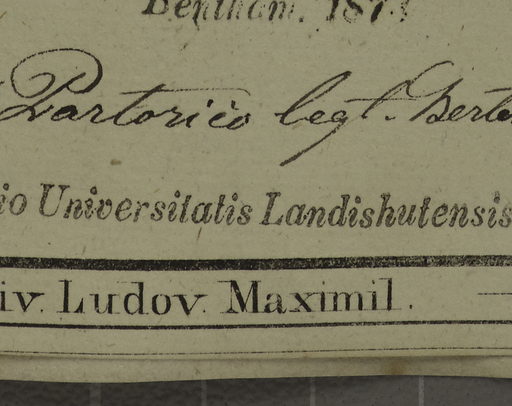 Bentham. 187
Partorico legt. Berte
io Universitatis Landishutensis
iv. Ludov. Maximil.